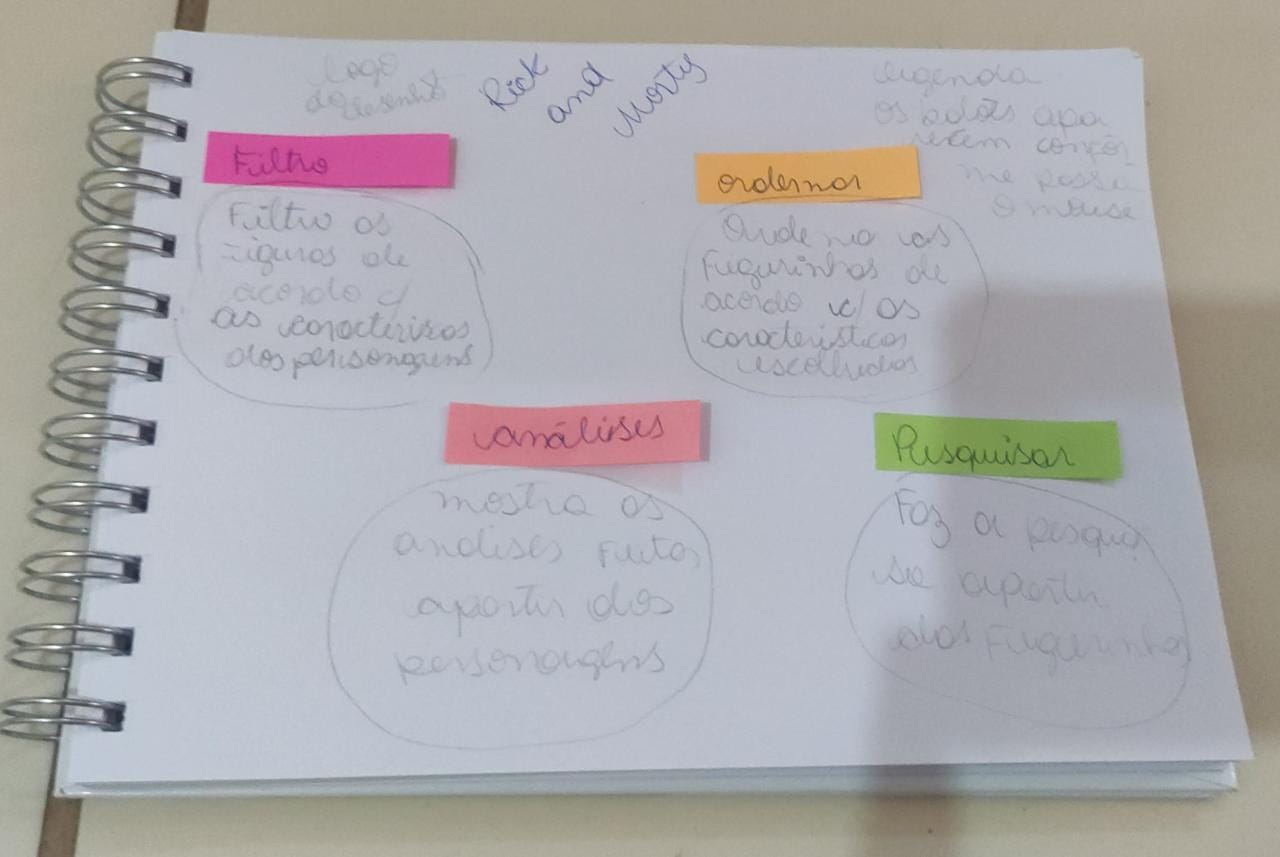 logo
do desenho
Rick
and
Morty
legenda
os botões apa
recem confor
me passa
o mouse
Filtro
Filtro os
Figuras de
acordo c/
as
dos personagens
ordenar
Ordena as
Fugurinhas de
acordo c/ as
caracteristicas
escolhidas
análises
mostra as
analises Feitas
apartir dos
personagens
Pesquisar
Faz a pesqui
sa apartir
das Fugurinhas